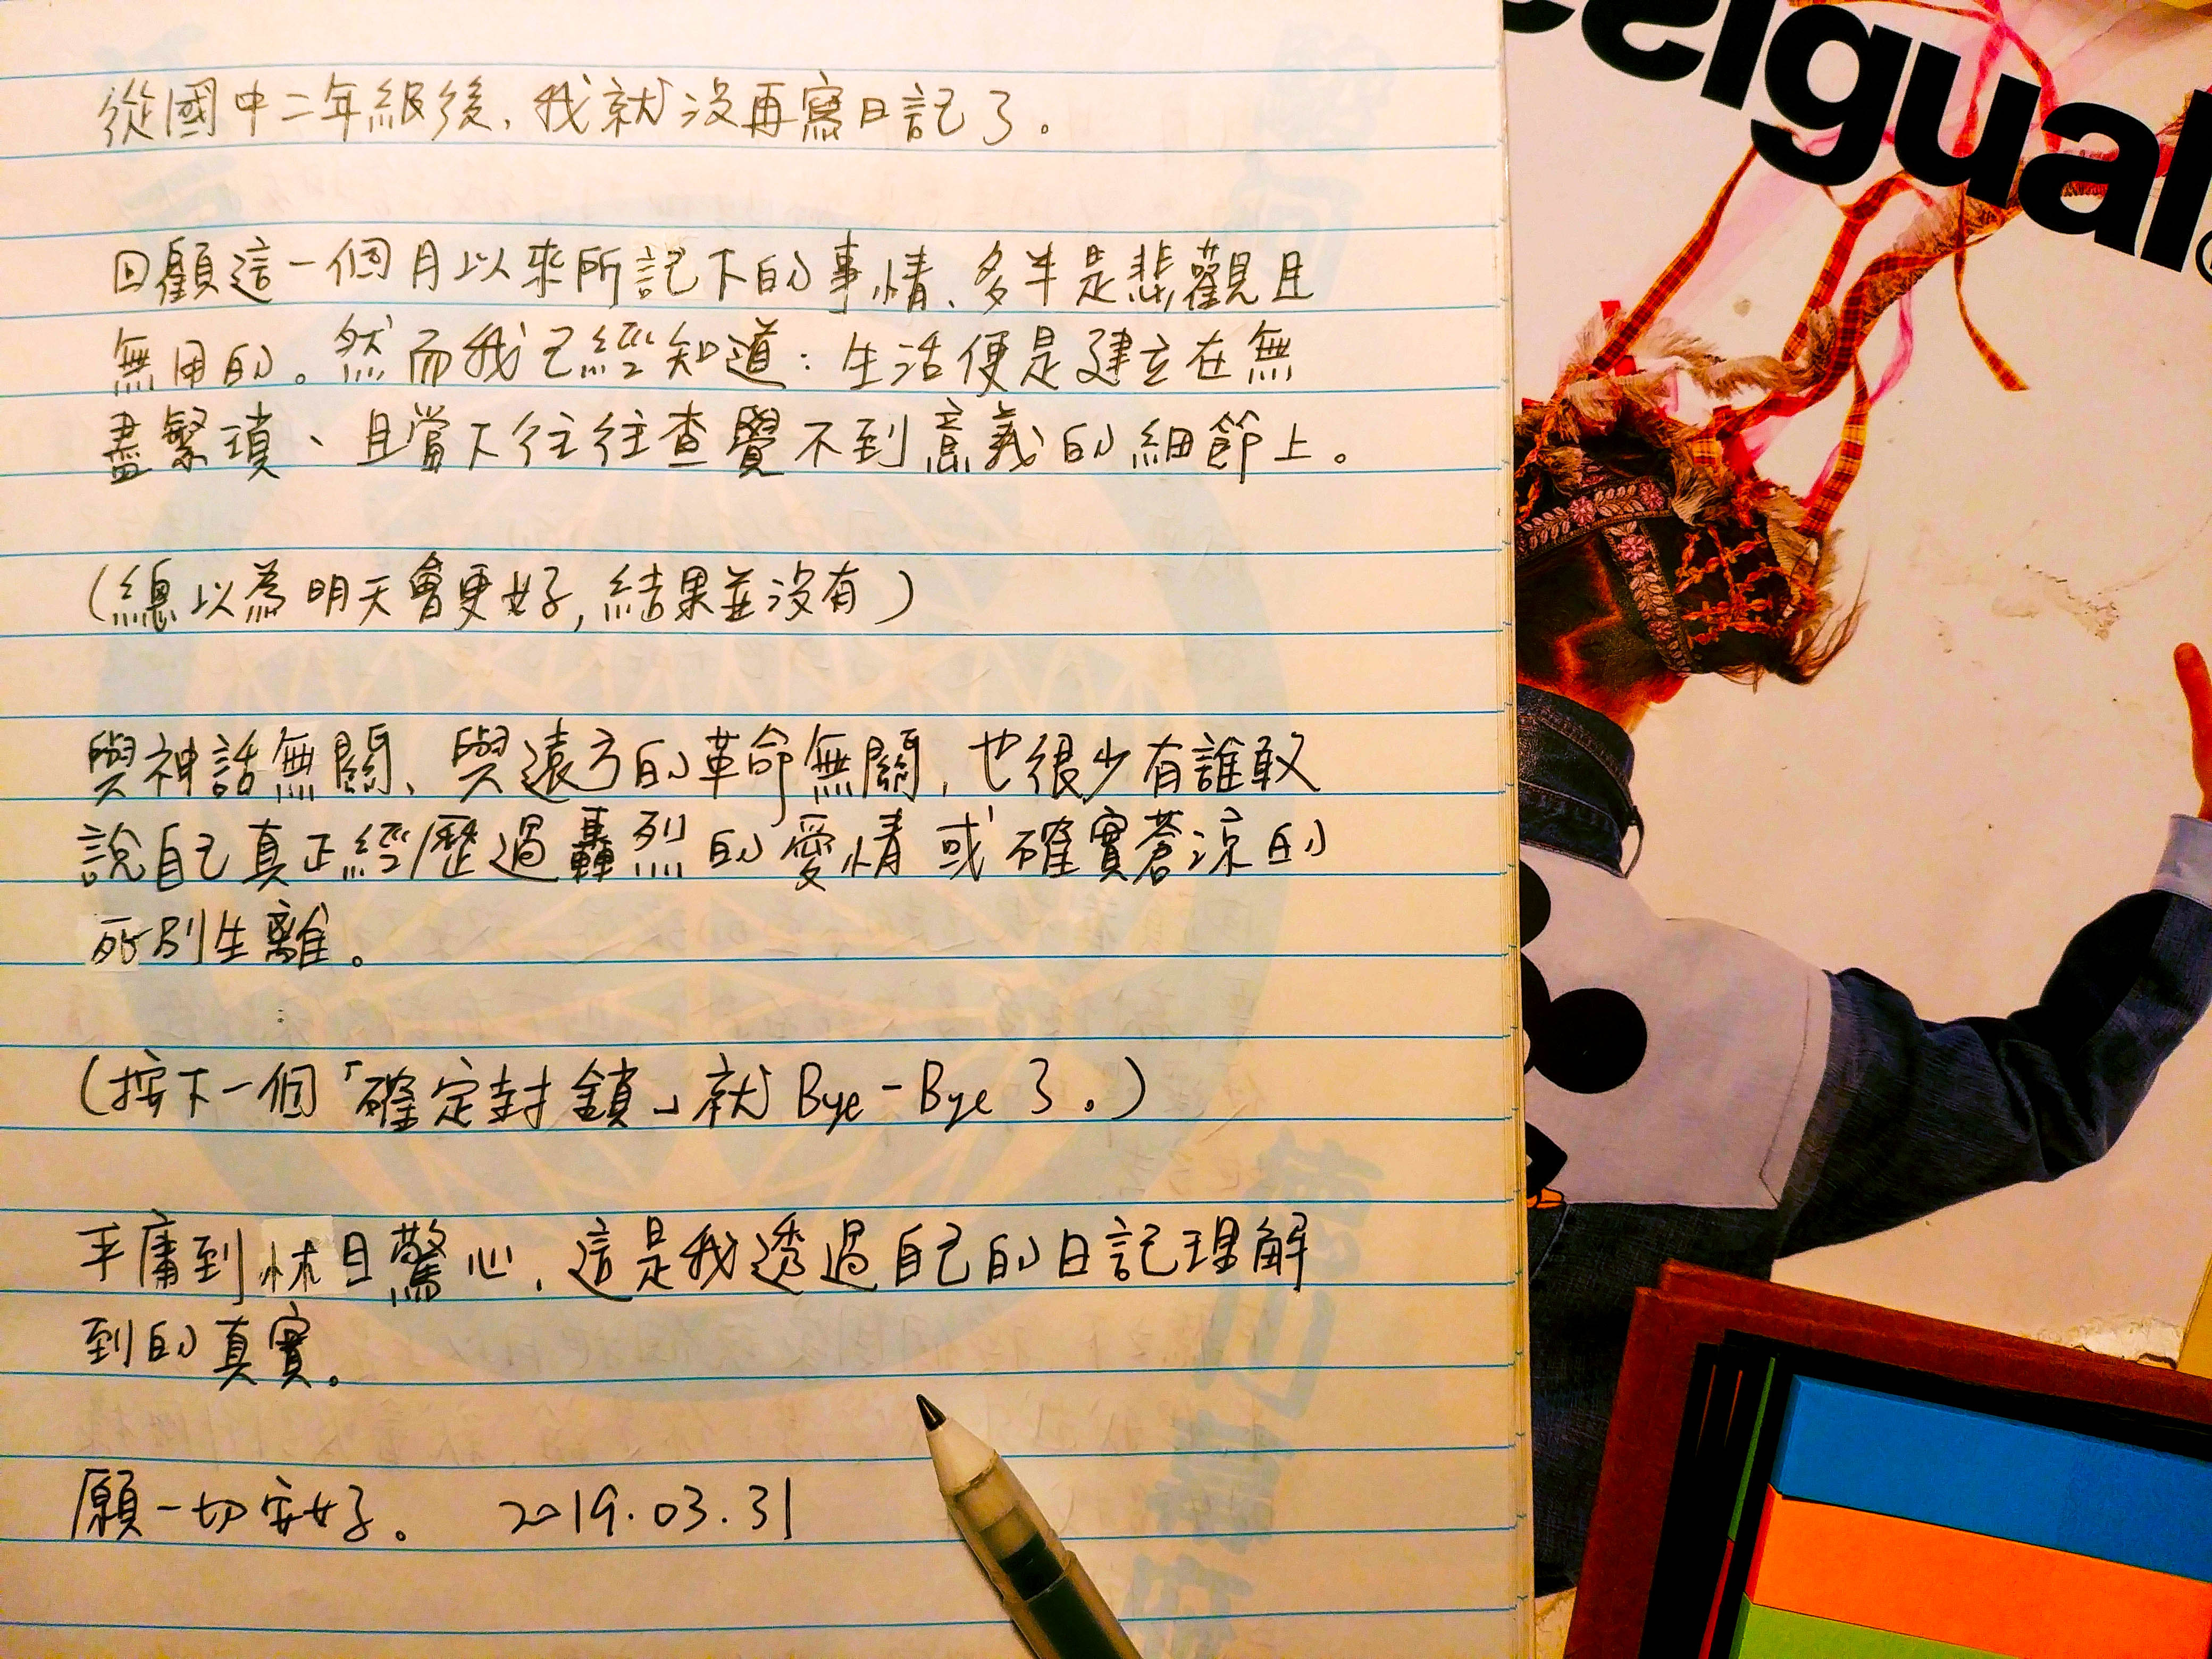 從國中二年級後，我就沒再寫日記了。
回顧這一個月以來所記下的事情、多半是悲觀且
無用的。然而我已經知道：生活便是建立在無
盡繁瑣、且當下往往查覺不到意義的細節上。
（總以為明天會更好，結果並沒有）
與神話無關、與遠方的革命無關，也很少有誰敢
說自己真正經歷過轟烈的愛情或確實蒼涼的
死別生離。
（按下一個「確定封鎖」就Bye-Bye了。）
平庸到怵目驚心，這是我透過自己的日記理解
到的真實。
願一切安好。 2019.03.31
esigual